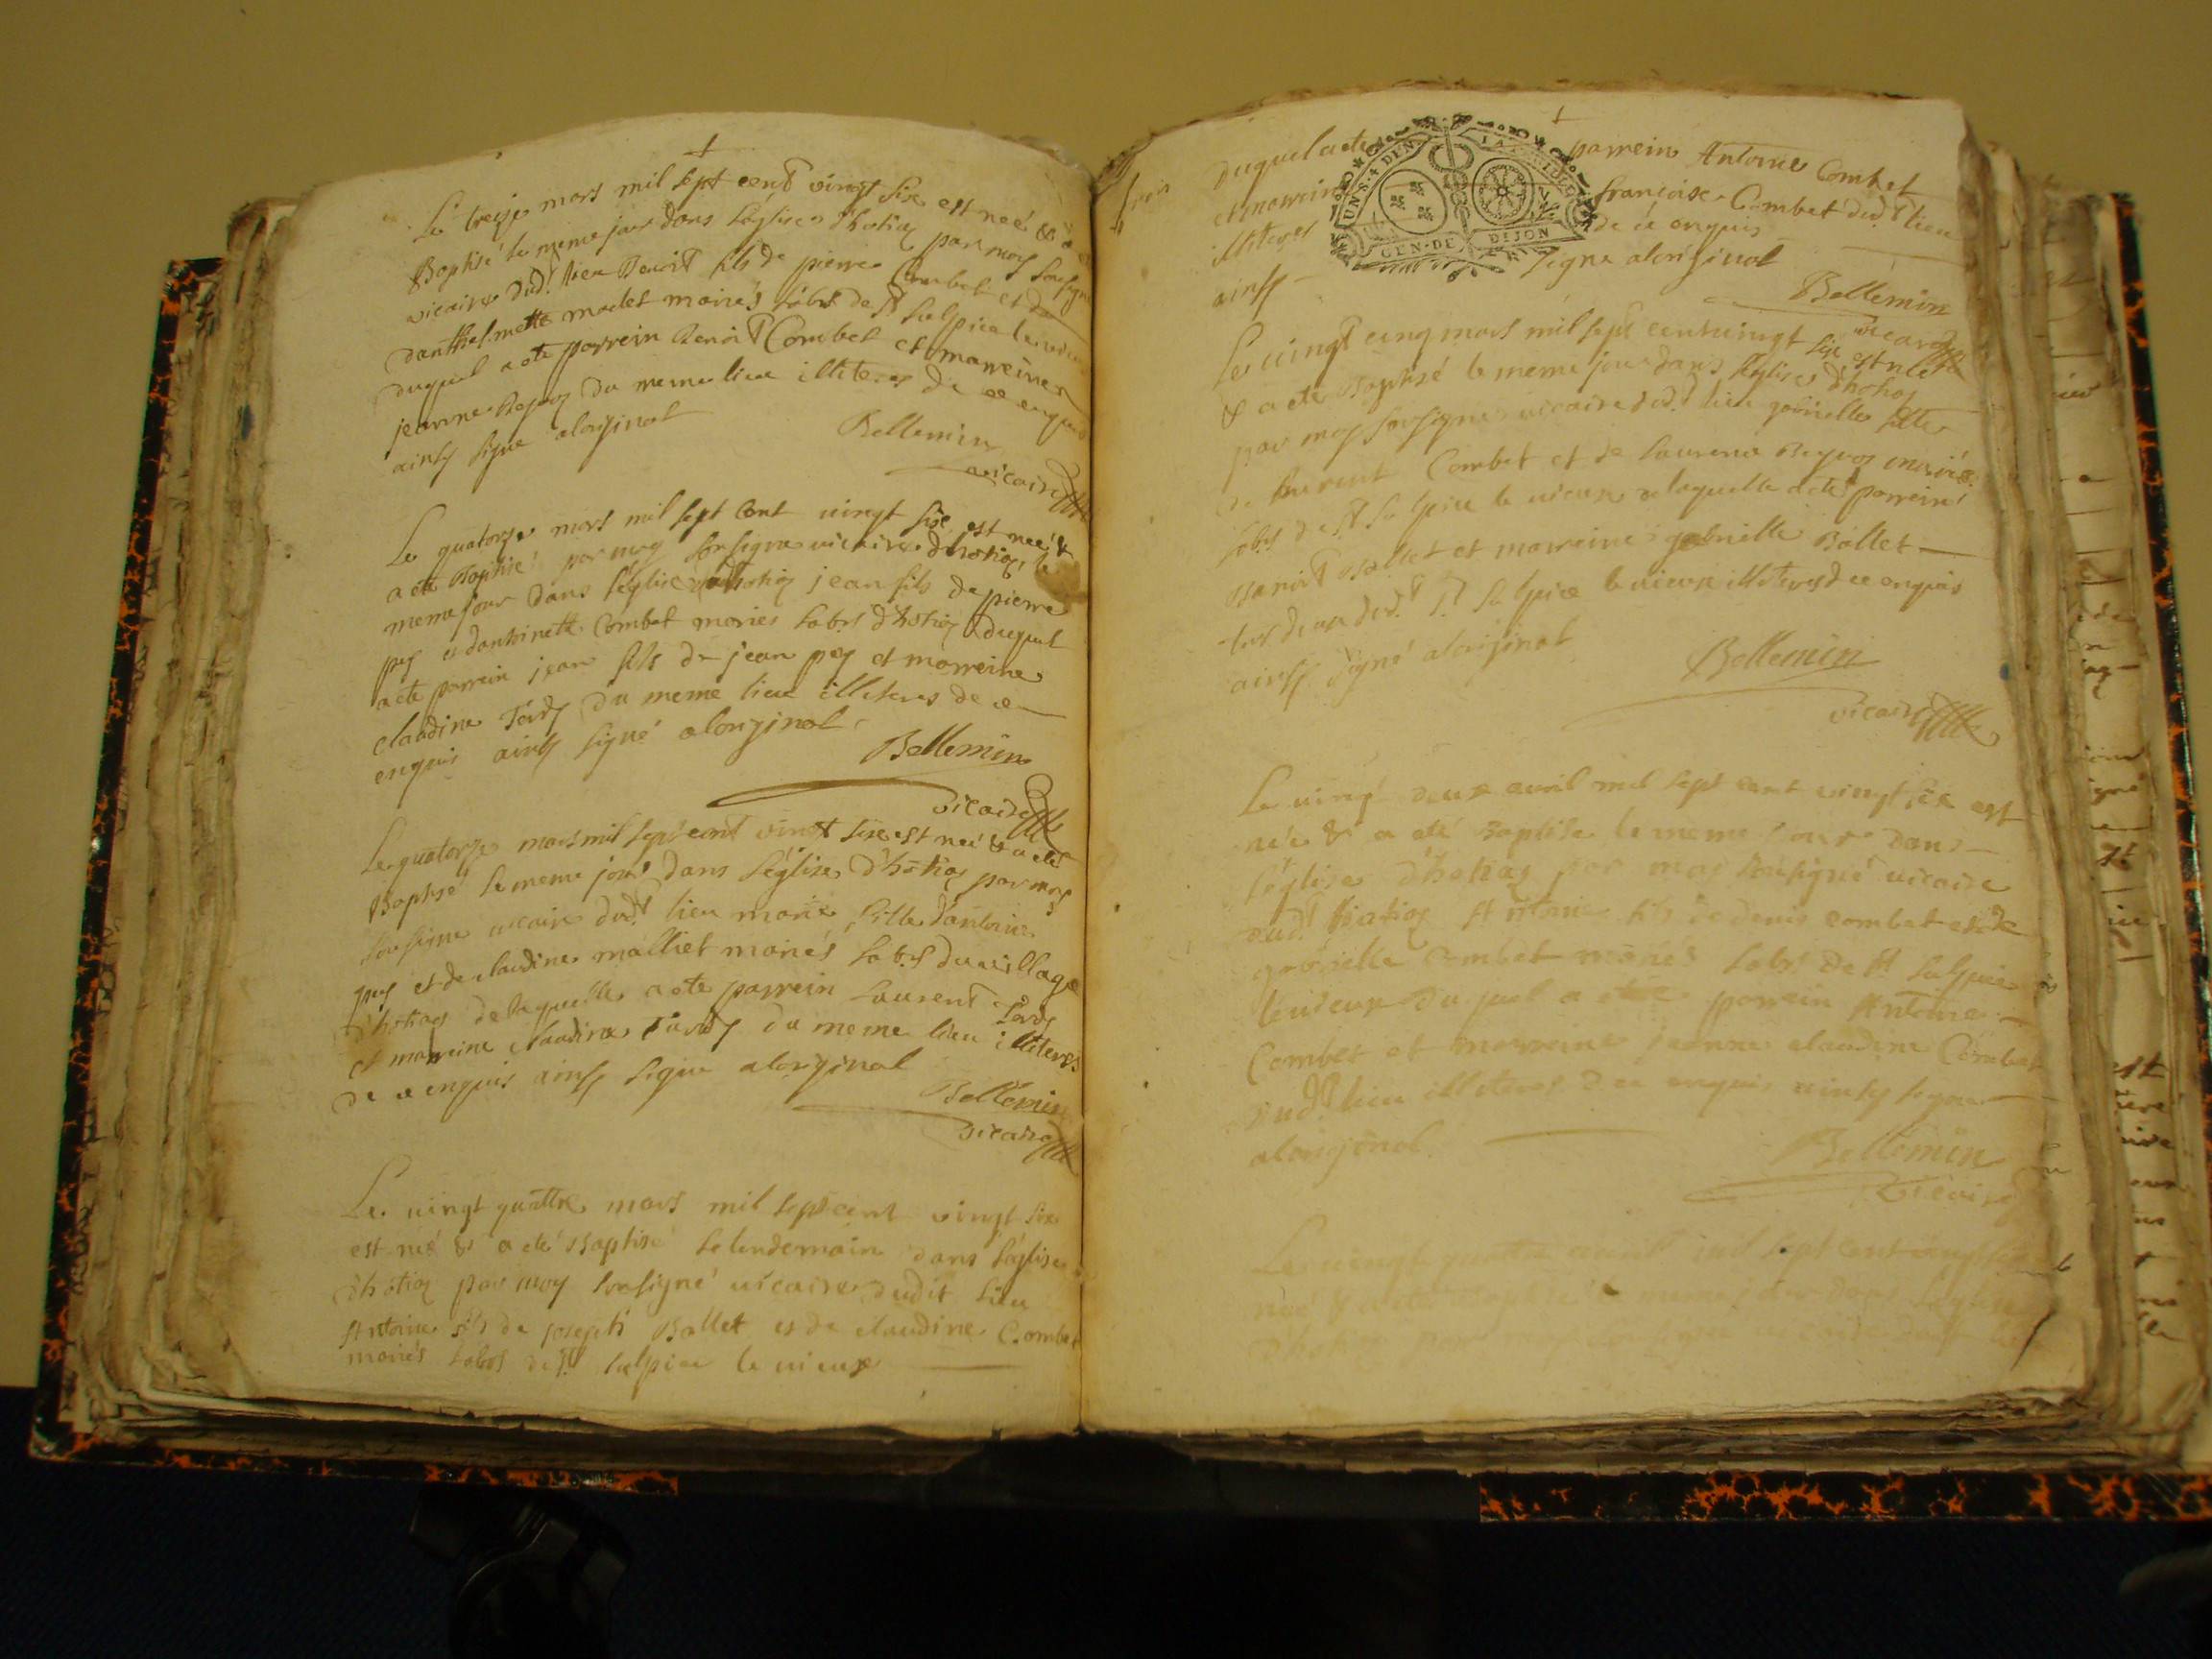 Le treize mars mil sept cent vingt six est née & a
Baptisé le meme jour dans l'église d'hotiaz par moy soussigne
vicaire dud.t lieu Benoit fils de pierre Combet et de
danthel.mette mariés labrs de st sulpice le vieux
duquel a ete parrein Benoit Combet et marreine
jeanne Reyvoz du meme lieu illiteres de ce enquis
ainsy signe aloriginal
Bellemin
vicaire
Le quatorze mars mil sept cent vingt six est née &
a ete Baptisé par moy sousigne vicaire d'hotiaz le
meme jour dans l'église d'hotiaz jean fils de pierre
pey et dantoinette Combet mariés labrs d'hotiaz duquel
a ete parrein jean fils de jean pey et marreine
claudine Tardy du meme lieu illiteres de ce
enquis ainsy signé aloriginal
Bellemin
vicaire
Le quatorze mars mil sept cent vingt six est neé & a eté
Baptisé le meme jour dans l'église d'hotiaz par moy
sousigne vicaire dud.t lieu marie fille dantoine
pey et de claudine malliet mariés labrs du village
d'hotiaz de laquelle a ete parrein laurent Tardy
et marreine claudine Tardy du meme lieu illiteres
de ce enquis ainsy signe aloriginal
Bellemin
vicaire
Le vingt quattre mars mil sept cent vingt six
est né & a eté Baptisé le lendemain dans l'église
d'hotiaz par moy sousigné vicaire dudit lieu
Antoine fils de joseph Ballet et de claudine Combet
mariés labrs de st. sulpice le vieux
trois
duquel a ete parrein Antoine Combet
et marreine francoise Combet dud.t lieu
illiteres de ce enquis
ainsy signe aloriginal
UN S. 4 DEN.
GEN. DE DIJON
Bellemin
vicaire
Le vingt cinq mars mil sept cent vingt six est née
& a ete Baptisé le meme jour dans l'église d'hotiaz
par moy sousigné vicaire dud.t lieu gabrielle fille
de laurent Combet et de laurence Reyvoz mariés
labrs de st sulpice le vieux de laquelle a ete parrein
Benoit Ballet et marreine gabrielle Ballet
tus deux dud.t st sulpice le vieux illiteres d ce enquis
ainsy signé aloriginal
Bellemin
vicaire
Le vingt deux avril mil sept cent vingt six est
née & a eté Baptisé le meme jour dans
l'église d'hotiaz par moy sousigné vicaire
dud.t hotiaz Antoine fils de denis combet et de
gabrielle Combet mariés labrs de st sulpice
le vieux duquel a ete parrein Antoine
Combet et marreine jeanne claudine Combet
dud.t lieu illiteres de ce enquis ainsy signe
aloriginal
Bellemin
vicaire
Le vingt quattre avril mil sept cent vingt six
née & a eté Baptisé meme jour dans l'église
d'hotiaz par moy